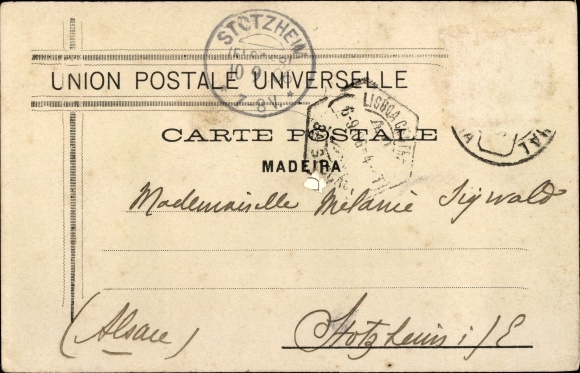 STOTZHEIM
UNION POSTALE UNIVERSELLE
LISBOA
CARTE POSTALE
MADEIRA
Mademoiselle Mélanie Sigwald
(Alsace)
Stotzheim i/E